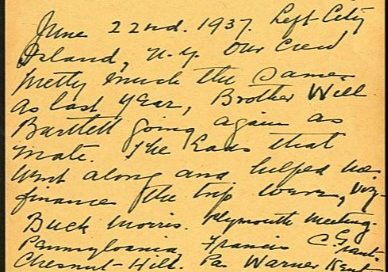 June 22nd. 1937. Left City
Island, N.Y. Our Crew
pretty much the same
as last year, Brother Will
Bartlett going again as
mate. The lads that
went along and helped us
finance the trip were, viz
Buck Morris. Plymouth Meeting.
Pennsylvania Francis C. Grant.
Chesnut-Hill. Pa Warner Kent